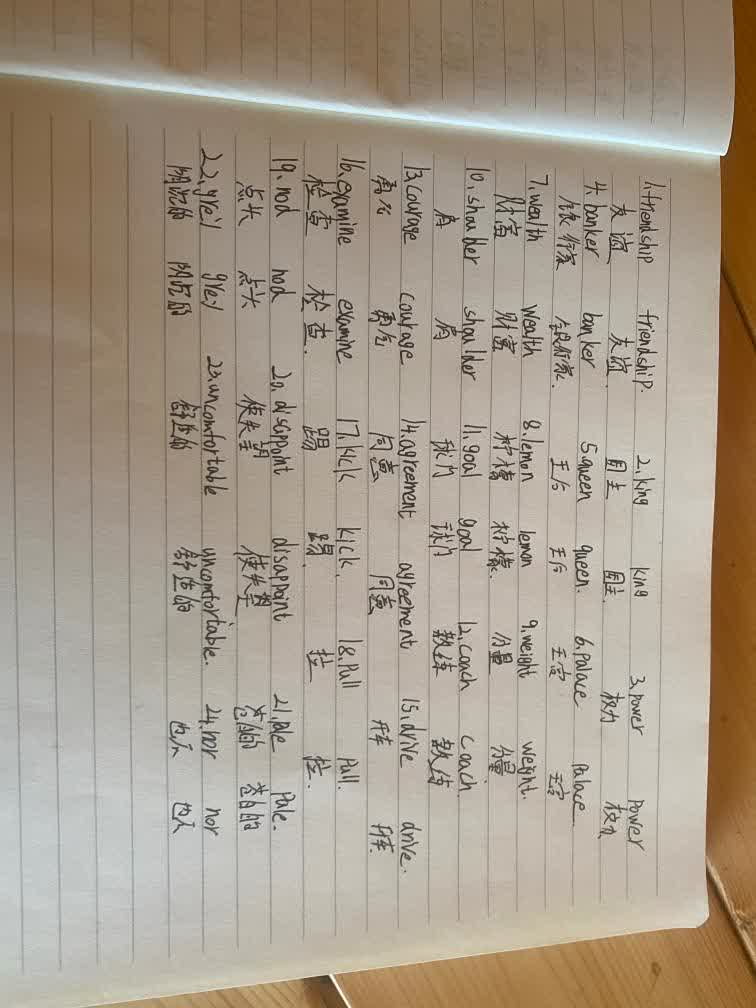 1.friendship friendship. 2.king king 3.power power
友谊 友谊. 国王 国王. 权力 权力
4.banker banker 5.queen queen. 6.palace palace
银行家 银行家. 王后 王后 王宫 王宫
7.wealth wealth 8.lemon lemon 9.weight weight.
财富 财富 柠檬 柠檬. 分量 分量
10.shoulder shoulder 11.goal goal 12.coach coach.
肩 肩 球门 球门 教练 教练
13.courage courage 14.agreement agreement 15.drive drive.
勇气 勇气 同意 同意 开车 开车.
16.examine examine 17.kick kick. 18.pull pull.
检查 检查. 踢 踢. 拉 拉.
19.nod nod 20.disappoint disappoint 21.pale pale.
点头 点头 使失望 使失望 苍白的 苍白的
22.grey grey 23.uncomfortable uncomfortable. 24.nor nor
阴沉的 阴沉的 舒适的 舒适的 也不 也不